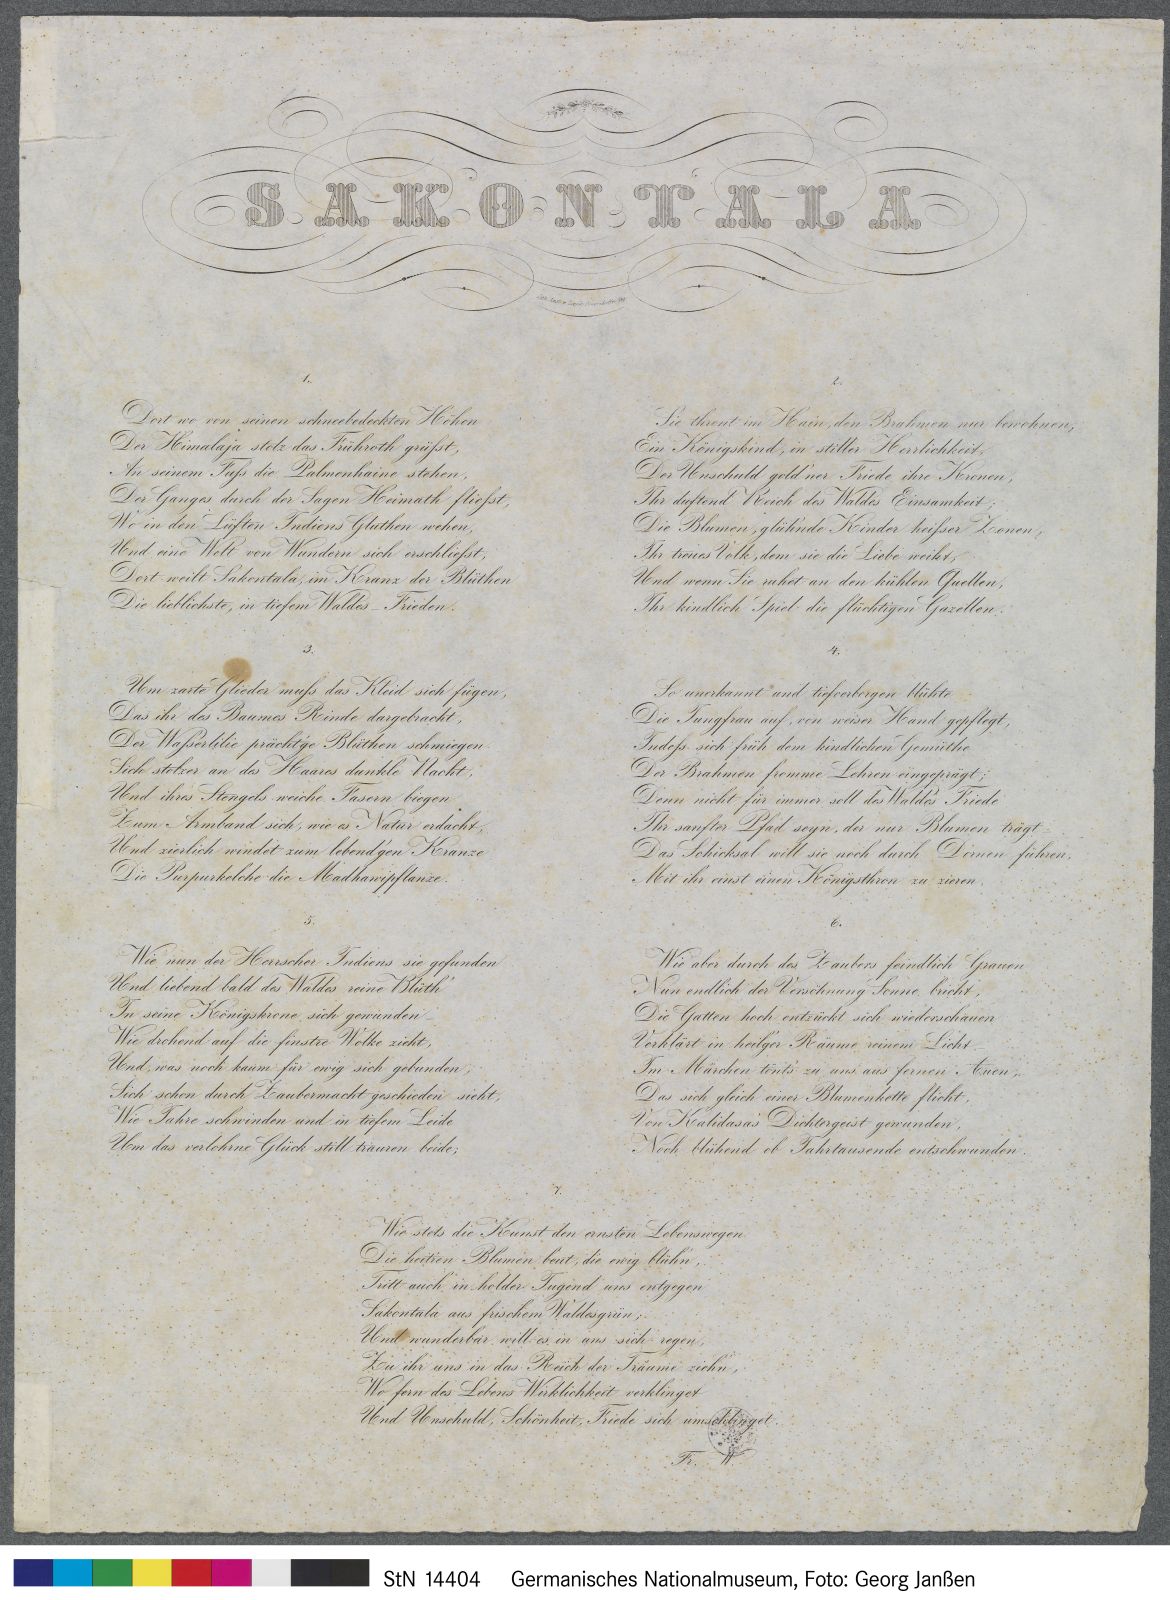 SAKONTALA
1.
Dort wo von seinen schneebedeckten Höhen
Der Himalaja stolz das Frühroth grüßt,
An seinem Fuß die Palmenhaine stehen,
Der Ganges durch der Sagen Heimath fließt,
Wo in den Lüften Indiens Gluthen wehen,
Und eine Welt von Wundern sich erschließt;
Dort weilt Sakontala, im Kranz der Blüthen
Die lieblichste, in tiefem Waldes-Frieden.
2.
Sie thront im Hain, den Brahmen nur bewohnen,
Ein Königskind, in stiller Herrlichkeit,
Der Unschuld gold'ner Friede ihre Kronen,
Ihr duftend Reich des Waldes Einsamkeit;
Die Blumen, glüh'nde Kinder heißer Zonen,
Ihr treues Volk, dem sie die Liebe weiht,
Und wenn Sie ruhet an den kühlen Quellen,
Ihr kindlich Spiel die flüchtigen Gazellen.
3.
Um zarte Glieder muß das Kleid sich fügen,
Das ihr des Baumes Rinde dargebracht,
Der Waßerlilie prächt'ge Blüthen schmiegen
Sich stolzer an des Haares dunkle Nacht,
Und ihres Stengels weiche Fasern biegen
Zum Armband sich, wie es Natur erdacht,
Und zierlich windet zum lebend'gen Kranze
Die Purpurkelche die Madhawipflanze.
4.
So unerkannt und tiefverborgen blühte
Die Jungfrau auf, von weiser Hand gepflegt,
Indeß sich früh dem kindlichen Gemüthe
Der Brahmen fromme Lehren eingeprägt;
Denn nicht für immer soll des Waldes Friede
Ihr sanfter Pfad seyn, der nur Blumen trägt_
Das Schicksal will sie noch durch Dornen führen,
Mit ihr einst einen Königsthron zu zieren.
5.
Wie nun der Herrscher Indiens sie gefunden
Und liebend bald des Waldes reine Blüth'
In seine Königskrone sich gewunden_
Wie drohend auf die finstre Wolke zieht,
Und, was noch kaum für ewig sich gebunden,
Sich schon durch Zaubermacht geschieden sieht,
Wie Jahre schwinden und in tiefem Leide
Um das verlohrne Glück still trauren beide;
6.
Wie aber durch des Zaubers feindlich Grauen
Nun endlich der Versöhnung Sonne bricht,
Die Gatten hoch entzückt sich wiederschauen
Verklärt in heil'ger Räume reinem Licht_
Im Märchen tönt's zu uns aus fernen Auen,
Das sich gleich einer Blumenkette flicht,
Von Kalidasa's Dichtergeist gewunden,
Noch blühend ob Jahrtausende entschwunden.
7.
Wie stets die Kunst den ernsten Lebenswegen
Die heitren Blumen beut, die ewig blühn,
Tritt auch in holder Jugend uns entgegen
Sakontala aus frischem Waldesgrün;
Und wunderbar will es in uns sich regen,
Zu ihr uns in das Reich der Träume ziehn,
Wo fern des Lebens Wirklichkeit verklinget
Und Unschuld, Schönheit, Friede sich umschlinget.
Fr. W.
StN 14404 Germanisches Nationalmuseum, Foto: Georg Janßen